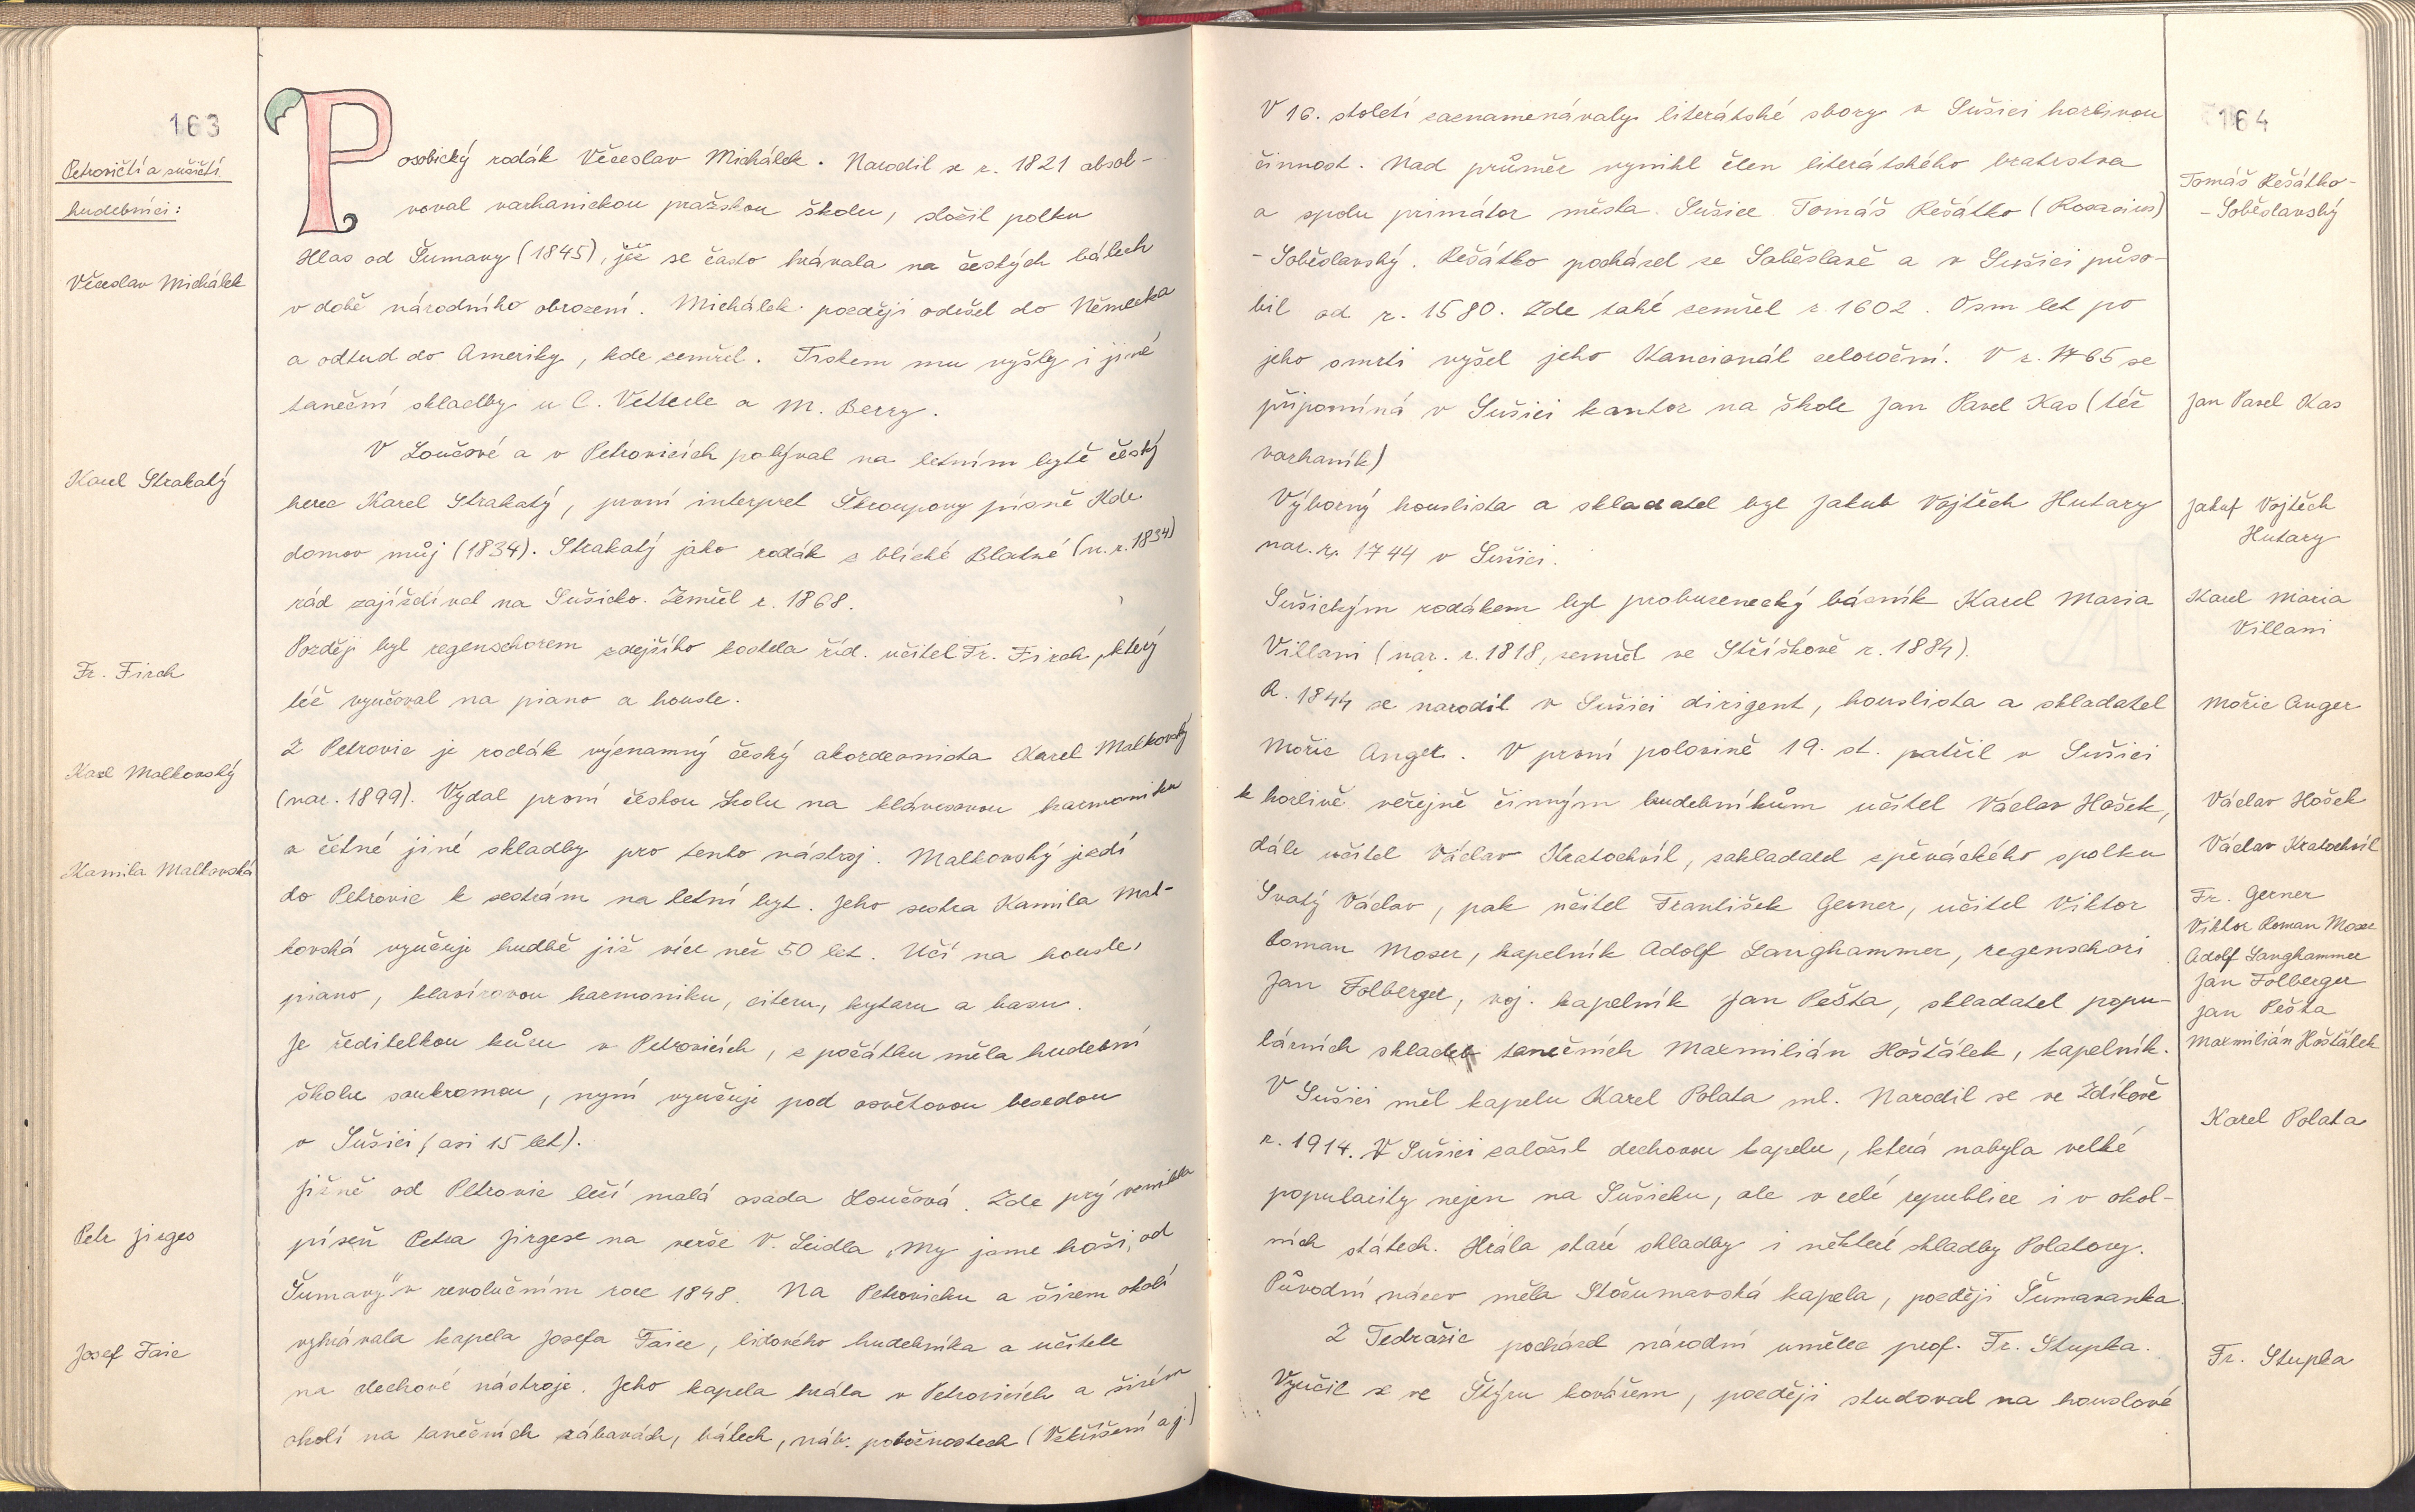 163
Petrovičtí a sušičtí
hudebníci:
Posobický rodák Věceslav Michálek. Narodil se r. 1821 absol-
voval varhanickou pražskou školu, složil polku
Hlas od Šumavy (1845), jěž se často hrávala na českých bálech
Věceslav Michálek
v době národního obrození. Michálek později odešel do Německa
a odtud do Ameriky, kde zemřel. Tiskem mu vyšly i jiné
taneční skladby u C. Vetterle a M. Berry.
V Loučové a v Petrovicích pobýval na letním bytě český
Karel Strakatý
herec Karel Strakatý, první interpret Škroupovy písně Kde
domov můj (1834). Strakatý jako rodák z blízké Blatné (n. r. 1834)
rád zajížděl na Sušicko. Zemřel r. 1868.
Později byl regenschorem zdejšího kostela říd. učitel Fr. Firch, který
Fr. Firch
též vyučoval na piano a housle.
Z Petrovic je rodák významný český akordeonista Karel Malkovský
Karel Malkovský
(nar. 1899). Vydal první českou školu na klávesovou harmoniku
a četné jiné skladby pro tento nástroj. Malkovský jezdí
Kamila Malkovská
do Petrovic k sestrám na letní byt. Jeho sestra Kamila Mal-
kovská vyučuje hudbě již více než 50 let. Učí na housle,
piano, klavírovou harmoniku, citeru, kytaru a basu.
Je ředitelkou kůru v Petrovicích, z počátku měla hudební
školu soukromou, nyní vyučuje pod osvětovou besedou
v Sušici (asi 15 let).
Jižně od Petrovic leží malá osada Loučová. Zde prý vznikla
Petr Jirges
píseň Petra Jirgese na verše V. Leidla „My jsme hoši, od
Šumavy" v revolučním roce 1848. Na Petrovicku a širém okolí
vyhrávala kapela Josefa Faice, lidového hudebníka a učitele
Josef Faic
na dechové nástroje. Jeho kapela hrála v Petrovicích a širém
okolí na tanečních zábavách, bálech, náb. pobožnostech (Vzkříšení aj.)
164
V 16. století zaznamenávaly literátské sbory v Sušici horlivou
činnost. Nad průměr vynikl člen literátského bratrstva
Tomáš Rešátko-
-Soběslavský
a spolu primátor města Sušice Tomáš Rešátko (Rosacius)
-Soběslavský. Rešátko pocházel ze Soběslavě a v Sušici půso-
bil od r. 1580. Zde také zemřel r. 1602. Osm let po
jeho smrti vyšel jeho Kancionál celoroční. V r. 1765 se
připomíná v Sušici kantor na škole Jan Pavel Kas (též
Jan Pavel Kas
varhaník)
Výborný houslista a skladatel byl Jakub Vojtěch Hutary
Jakuf Vojtěch
Hutary
nar. r. 1744 v Sušici.
Sušickým rodákem byl probuzenecký básník Karel Maria
Karel Maria
Villani
Villani (nar. r. 1818, zemřel ve Střížkově r. 1884).
R. 1844 se narodil v Sušici dirigent, houslista a skladatel
Mořic Anger
Mořic Anger. V první polovině 19. st. patřil v Sušici
k horlivě veřejně činným hudebníkům učitel Václav Hošek,
Václav Hošek
dále učitel Václav Kratochvíl, zakladatel zpěváckého spolku
Václav Kratochvíl
Svatý Václav, pak učitel František Gerner, učitel Viktor
Fr. Gerner
Viktor Roman Moser
Roman Moser, kapelník Adolf Langhammer, regenschori
Adolf Langhammer
Jan Folberger, voj. kapelník Jan Pešta, skladatel popu-
Jan Folberger
Jan Pešta
lárních skladeb tanečních Maxmilián Hošťálek, kapelník.
Maxmilián Hošťálek
V Sušici měl kapelu Karel Polata ml. Narodil se ve Zdíkově
Karel Polata
r. 1914. V Sušici založil dechovou kapelu, která nabyla velké
popularity nejen na Sušicku, ale v celé republice i v okol-
ních státech. Hrála staré skladby i některé skladby Polatovy.
Původní název měla Stošumavská kapela, později Šumavanka.
Z Tedražic pocházel národní umělec prof. Fr. Stupka.
Fr. Stupka
Vyučil se ve Štýru kovářem, později studoval na houslové